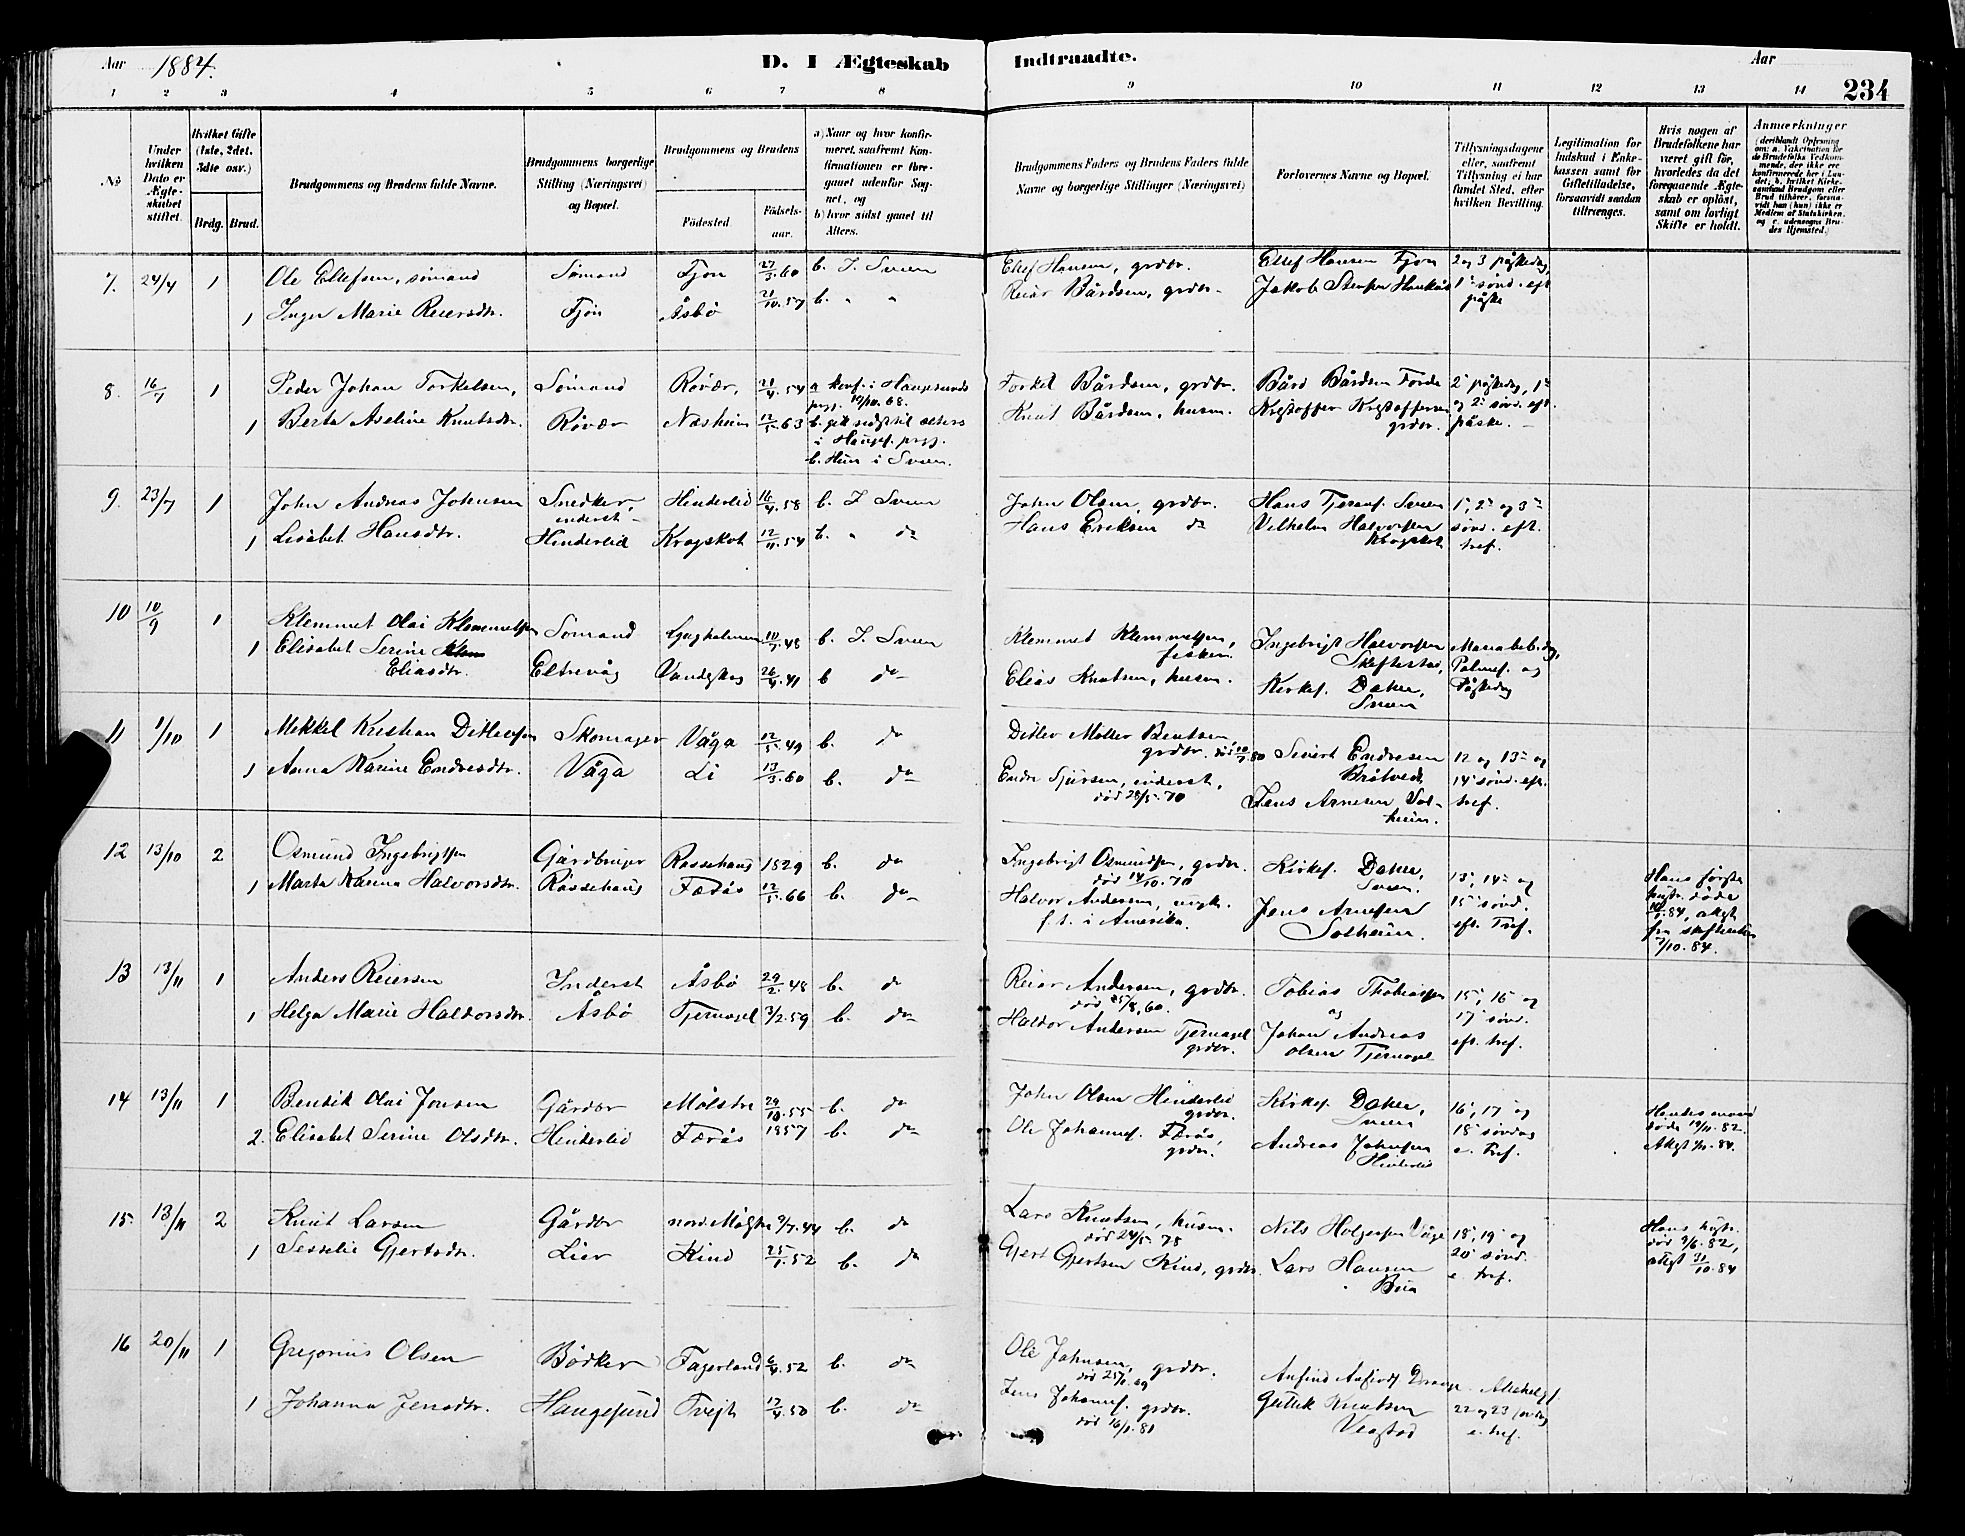 Aar 1884. D. I Ægteskab Indtraadte. Aar
234
1 2 3 4 5 6 7 8 9 10 11 12 13 14
No.
Under hvilken Dato er Ægteskabet stiftet.
Hvilket Gifte (1ste, 2det, 3die osv.)
Brdg. Brud.
Brudgommens og Brudens fulde Navne.
Brudgommens borgerlige Stilling (Næringsvei) og Bopæl.
Brudgommens og Brudens
Födested.
Födselsaar.
a) Naar og hvor konfirmeret, saafremt Konfirmationen er foregaaet udenfor Sognet, og
b) hvor sidst gaaet til Alters.
Brudgommens Faders og Brudens Faders fulde Navne og borgerlige Stillinger (Næringsvei)
Forlovernes Navne og Bopæl.
Tillysningsdagene eller, saafremt Tillysning ei har fundet Sted, efter hvilken Bevilling.
Legitimation for Indskud i Enkekassen samt for Giftetilladelse, forsaavidt saadan tiltrænges.
Hvis nogen af Brudefolkene har været gift før, hvorledes da det foregaaende Ægteskab er opløst, samt om lovligt Skifte er holdt.
Anmærkninger
(deriblandt Oplysning om: a. Vakcination for de Brudefolks Vedkommende, der ikke ere konfirmerede her i Landet; b. hvilket Kirkesamfund Brudgom eller Brud tilhører, forsaavidt han (hun) ikke er Medlem af Statskirken, og c. udensogns Brudes Hjemsted.)
7. 24/4 1 Ole Ellefsen, sømand Sømand Fjon 27/3.60 b. I Sveen Ellef Hansen, grdbr. Ellef Hansen Fjon 2 og 3 påskedag,
1 Inger Marie Reiersdtr. Fjon Åsbø 21/10.57 b. " " Reiar Bårdsen, grdbr. Jakob Stensen Haukås 1ste sønd. eft.
påske
8. 16/7 1 Peder Johan Torkelsen, Sømand Røvær, 21/4.54 a. konf. i Haugesunds Torkel Bårdsen, grdbr. Bård Bårdsen Førde 2 påskedag, 1ste
prgj. 10/10.68.
1 Berta Aseline Knutsdtr. Røvær Næsheim 12/5.63 b. gik sidst til alters Knut Bårdsen, husm. Kristoffer Kristoffersen og 2. sønd. eft.
i Hauges. prgj. grdbr. påske.
b. Hun i Sveen.
9. 23/7 1 John Andreas Johnsen Snedker, Hinderlid 16/4.58 b. I Sveen John Olsen, grdbr. Hans Tjernes. Sveen 1, 2 og 3
inderst
1 Lisabet Hansdtr. Hinderlid Kragskot 12/11.54 b. " do Hans Eriksen do Vilhelm Halvorsen sønd. eft.
Kragskot tref.
10 10/9 1 Klemmet Olai Klemmetsen Sømand Lyngholmen 10/7.48 b. I Sveen Klemmet Klemmetsen, Ingebrigt Halvorsen Maria beb.dag,
fisker. Skiftestad, Palmes. og
1 Elisabet Serine Eliasdtr. Eltrevåg Vandaskog 26/4.41 b do Elias Knutsen, husm. Kirkes. Daher, Påskedag
Sveen
11 1/10 1 Mekkel Kristian Ditlevsen Skomager Våga 12/5.49 b. do Ditlev Møller Bentsen
grdbr. død 10/7.80 Sivert Endresen 12 og 13 og
1 Anna Karine Endresdtr. Våga Li 13/3.60 b. do Endre Sjursen, inderst, Bråtveit 14 sønd. eft.
død 28/5.70 Jens Arnesen Solheim. tref.
12 13/10 2 Osmund Ingebrigtsen Gårdbruger Rossehaug 1829 b. do Ingebrigt Osmundsen, grdbr. Kirkes. Daher, 13, 14 og Hans første
død 14/10.70 Sveen. hustr. døde
1 Marta Karina Halvorsdtr. Rossehaug Færås 12/5.66 b. do Halvor Andersen, Jens Arnesen 15 sønd. 10/1.84, attest
f. t. i Amerika. Solheim. eft. Tref. fra skifteretten
7/10.84.
13 13/11 1 Anders Reiersen Inderst Åsbø 29/2.48 b. do Reiar Andersen, grdbr. Tobias Thobiassen 15, 16 og
død 25/8.60. og
1 Helga Marie Haldorsdtr. Åsbø Tjernagel 3/2.59 b. do Haldor Andersen Tjernagel Johan Andreas 17 sønd.
grdbr. Olsen Tjernagel eft. tref.
14 13/11 1 Bendik Olai Jonsen Gårdbr Mølstre 29/10.55 b. do John Olsen Hinderlid Kirkes. Daher, 16, 17 og Hendes mand
grdbr. Sveen døde 19/11.82.
2. Elisabet Serine Olsdtr. Hinderlid Færås 1857 b. do Ole Johannes. Færås, Andreas Johnsen 18 søndag
grdbr. Hinderlid e. Tref.
15 13/11 2 Knut Larsen Gårdbr nord. Mølstre 9/7.44 b. do Lars Knutsen, husm. Nils Holgersen Våge 18, 19 og Hans hustr.
død 24/5 75 død 9/6.82,
1 Sesselie Gjertsdtr. Lier Kind 25/1.52 b. do Gjert Gjertsen Kind, grdbr. Lars Hansen 20 sønd. attest 31/10.84
Bua e. tref.
16 20/11 1 Gregorius Olsen Bødker Fagerland 6/4.52 b. do Ole Johnsen, grdbr. Anfind Anfinds. Mickelsf.
1 Johanna Jensdtr. Haugesund Tvejt 17/4.50 b. do Jens Johannes. grdbr. Guttek Knutsen 22 og 23 søndag
død 16/1.81 Veastad e. tref.